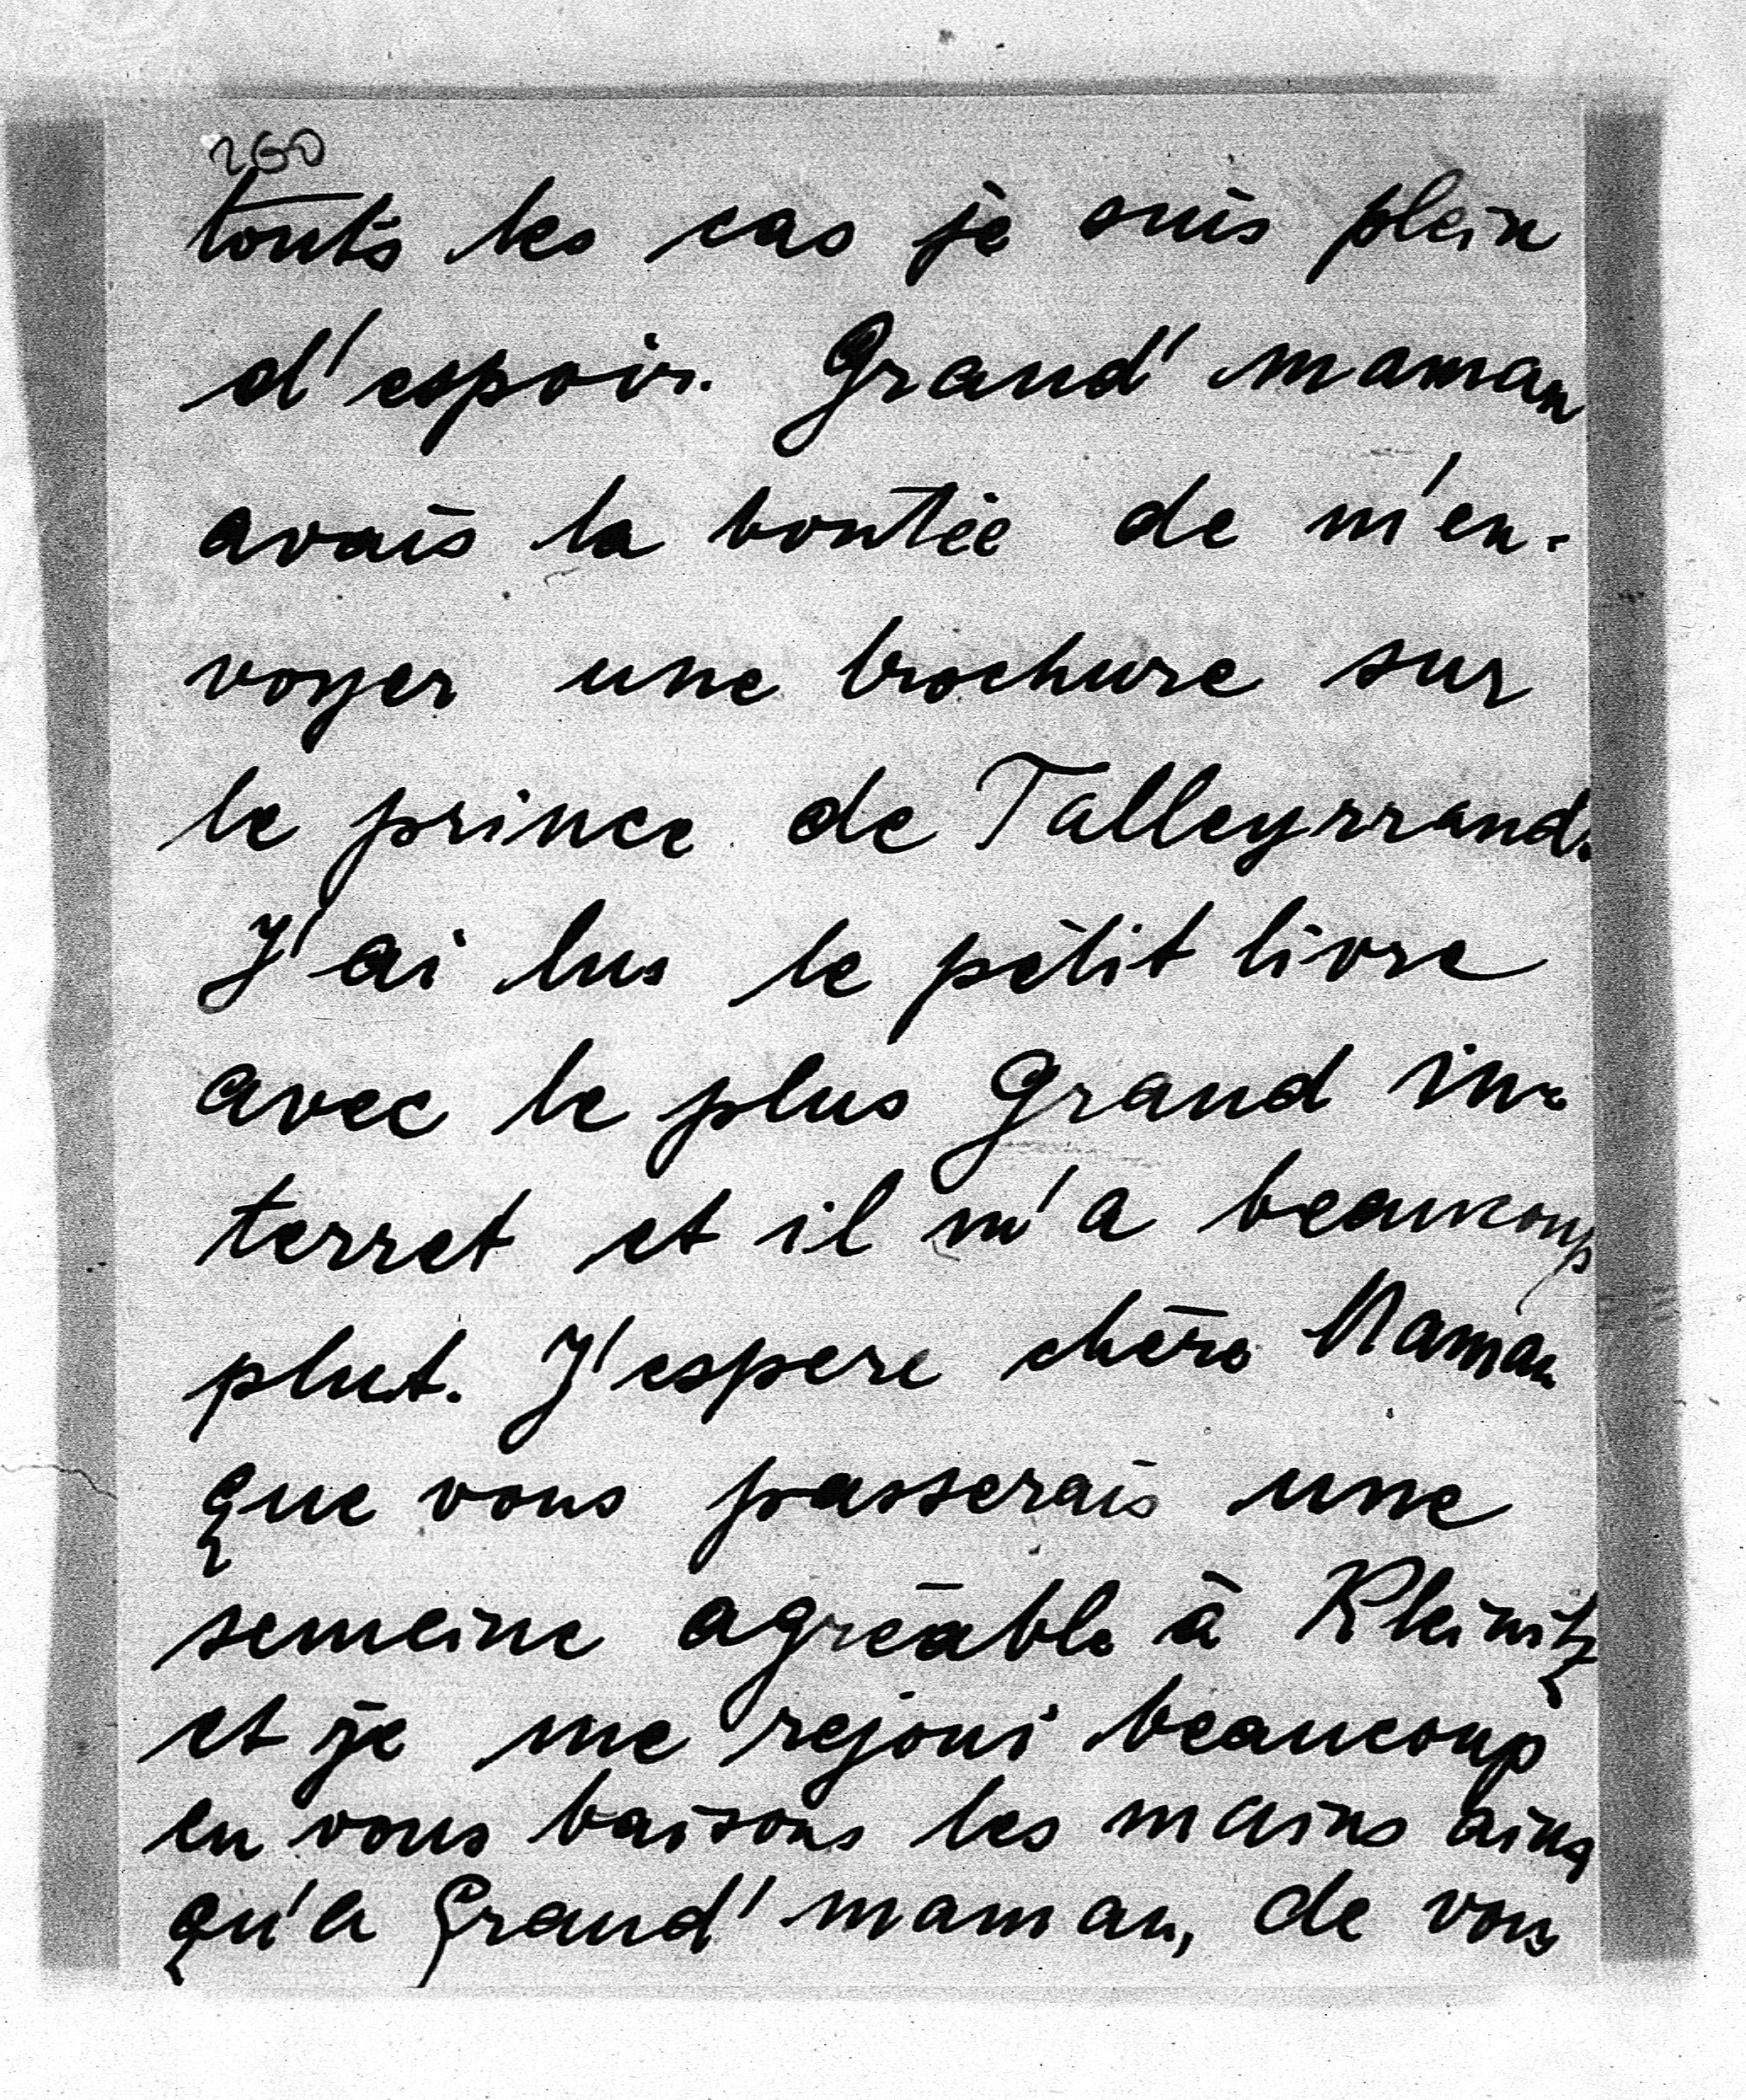 260
touts les cas je suis plein
d'espoir. Grand' maman
avais la bontée de m'en-
voyer une brochure sur
le prince de Talleyrrand.
J'ai lus le pètit livre
avec le plus grand in-
terret et il m'a beaucoup
plut. J'espere chère Maman
que vous passerais une
semeine agréable à Kleinitz
et je me rejoui beaucoup
en vous baisons les mains ainsi
qu'a Grand' maman, de vous